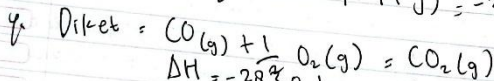 Diket : CO(g) + 1/2 O₂(g) = CO₂(g)
ΔH = -28